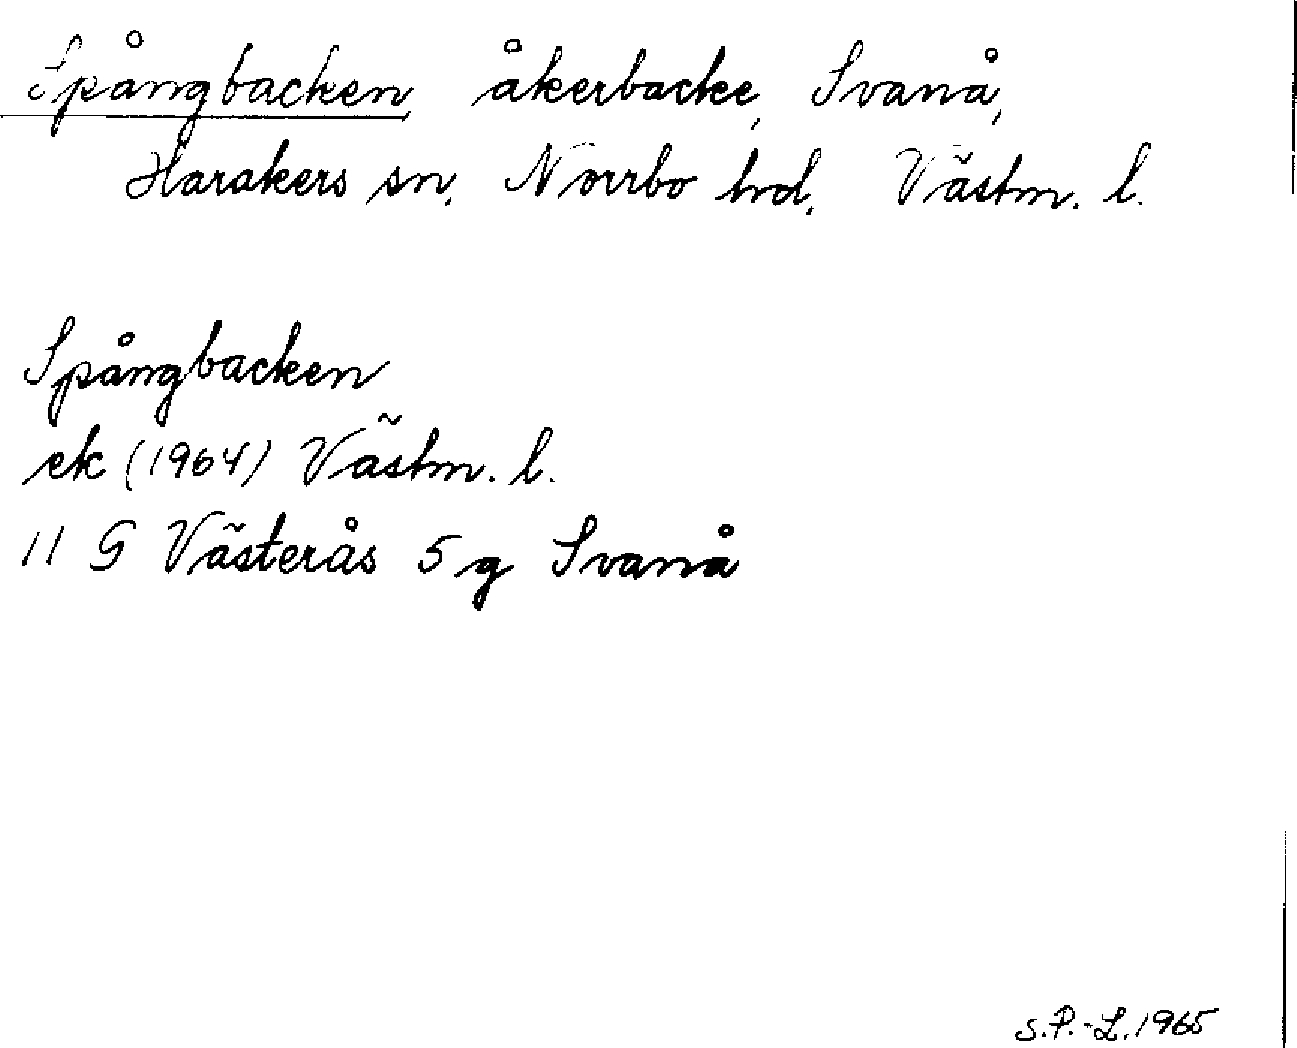 Spångbacken, åkerbacke, Svanå,
Harakers sn, Norrbo hd, Västm. l.
Spångbacken
ek (1964) Västm. l.
11 G Västerås 5 g Svanå
S.P.-L. 1965